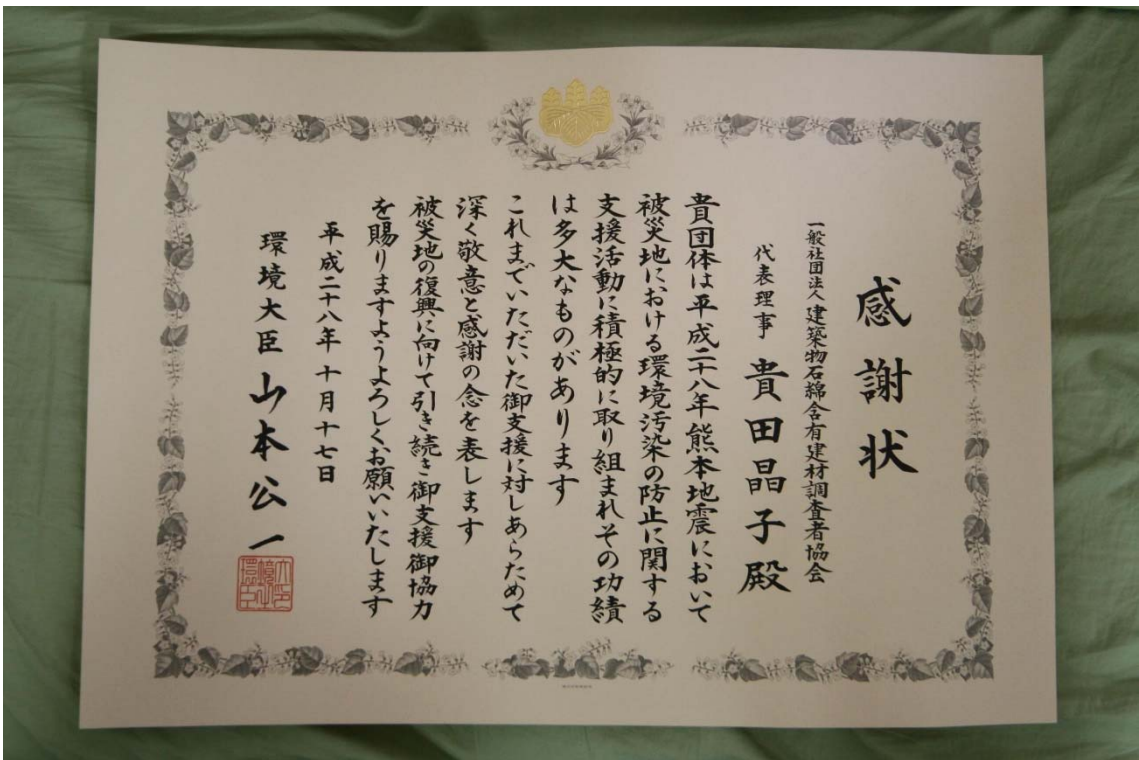 感謝状
一般社団法人 建築物石綿含有建材調査者協会
代表理事 貴田晶子殿
貴団体は平成二十八年熊本地震において
被災地における環境汚染の防止に関する
支援活動に積極的に取り組まれその功績
は多大なものがあります
これまでいただいた御支援に対しあらためて
深く敬意と感謝の念を表します
被災地の復興に向けて引き続き御支援御協力
を賜りますようよろしくお願いいたします
平成二十八年十月十七日
環境大臣 山本公一
環境大臣之印